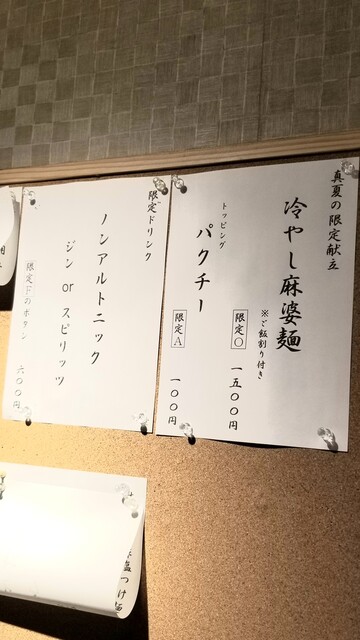 真夏の限定献立
冷やし麻婆麺
※ご飯割り付き
限定〇 一五〇〇円
トッピング
パクチー
限定A 一〇〇円
限定ドリンク
ノンアルトニック
ジン or スピリッツ
限定Fのボタン 六〇〇円
塩つけ麺
用